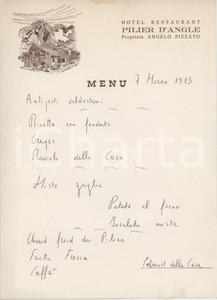 HOTEL RESTAURANT
PILIER D'ANGLE
Proprietà ANGELO PIZZATO
MENU
7 Marzo 1985
Antipasti valdostani
Risotto con fonduta
Crepes
Ravioli della Casa
Misto griglia
Patate al forno
Insalata mista
Chaud froid du Pilier
Frutta Fresca
Caffè
Cabernet della Casa
iCharta